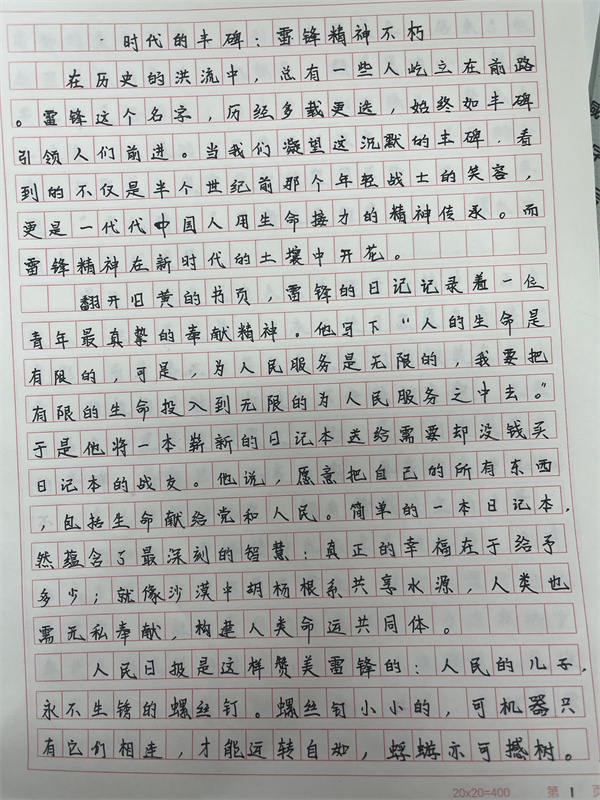 时代的丰碑：雷锋精神不朽
在历史的洪流中，总有一些人屹立在前路
。雷锋这个名字，历经多载更迭，始终如丰碑
引领人们前进。当我们凝望这沉默的丰碑，看
到的不仅是半个世纪前那个年轻战士的笑容，
更是一代代中国人用生命接力的精神传承。而
雷锋精神在新时代的土壤中开花。
翻开旧黄的书页，雷锋的日记记录着一位
青年最真挚的奉献精神。他写下“人的生命是
有限的，可是，为人民服务是无限的，我要把
有限的生命投入到无限的为人民服务之中去。”
于是他将一本崭新的日记本送给需要却没钱买
日记本的战友。他说，愿意把自己的所有东西
，包括生命献给党和人民。简单的一本日记本，
然蕴含了最深刻的智慧：真正的幸福在于给予
多少；就像沙漠中胡杨根系共享水源，人类也
需无私奉献，构建人类命运共同体。
人民日报是这样赞美雷锋的：人民的儿子，
永不生锈的螺丝钉。螺丝钉小小的，可机器只
有它们相连，才能运转自如，蜉蝣亦可撼树。
20×20=400
第 1 页